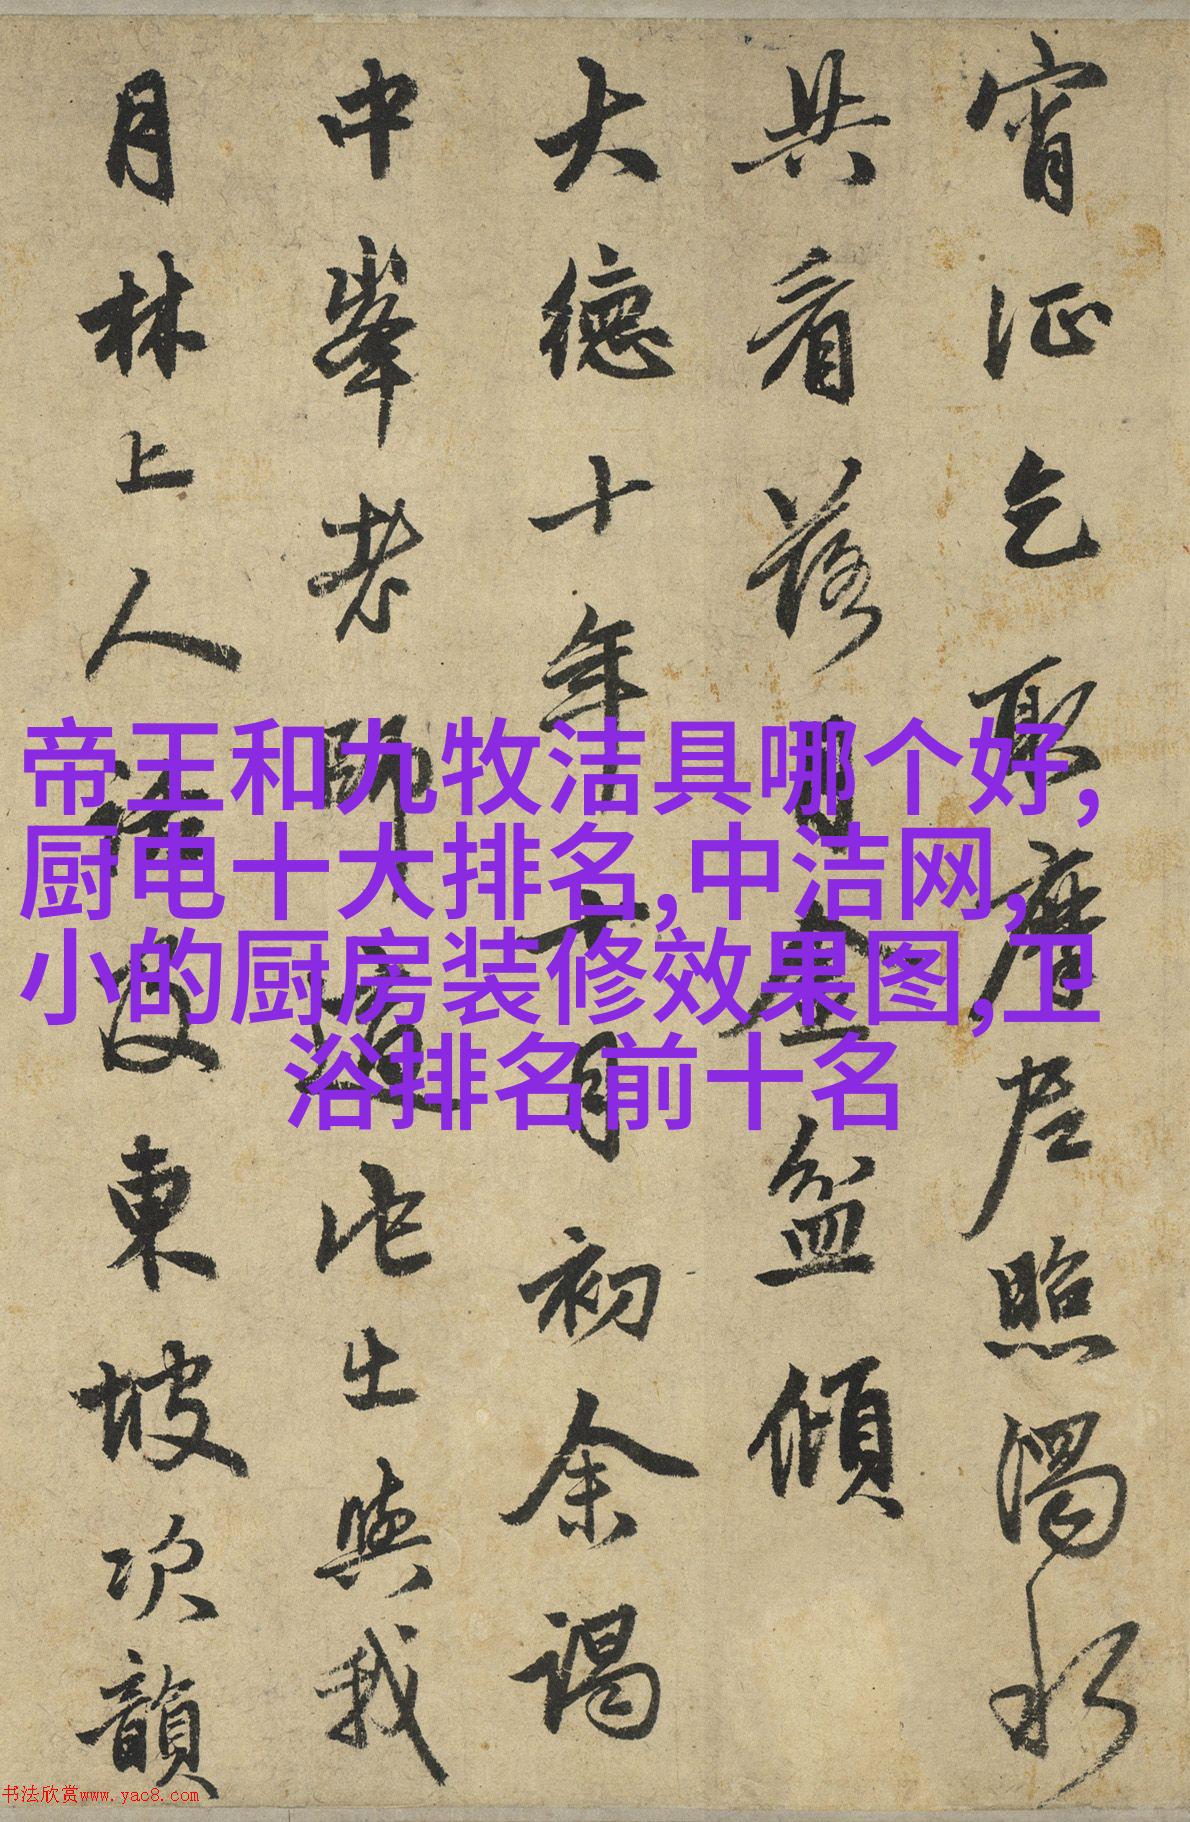 宵征乞取摩尼照濁水
共看落月金盆傾
大德十年十二月初余謁
中峯老師道此出與我
月林上人法友東坡次韻
帝王和九牧洁具哪个好,
厨电十大排名,中洁网,
小的厨房装修效果图,卫
浴排名前十名
书法欣赏www.yac8.com